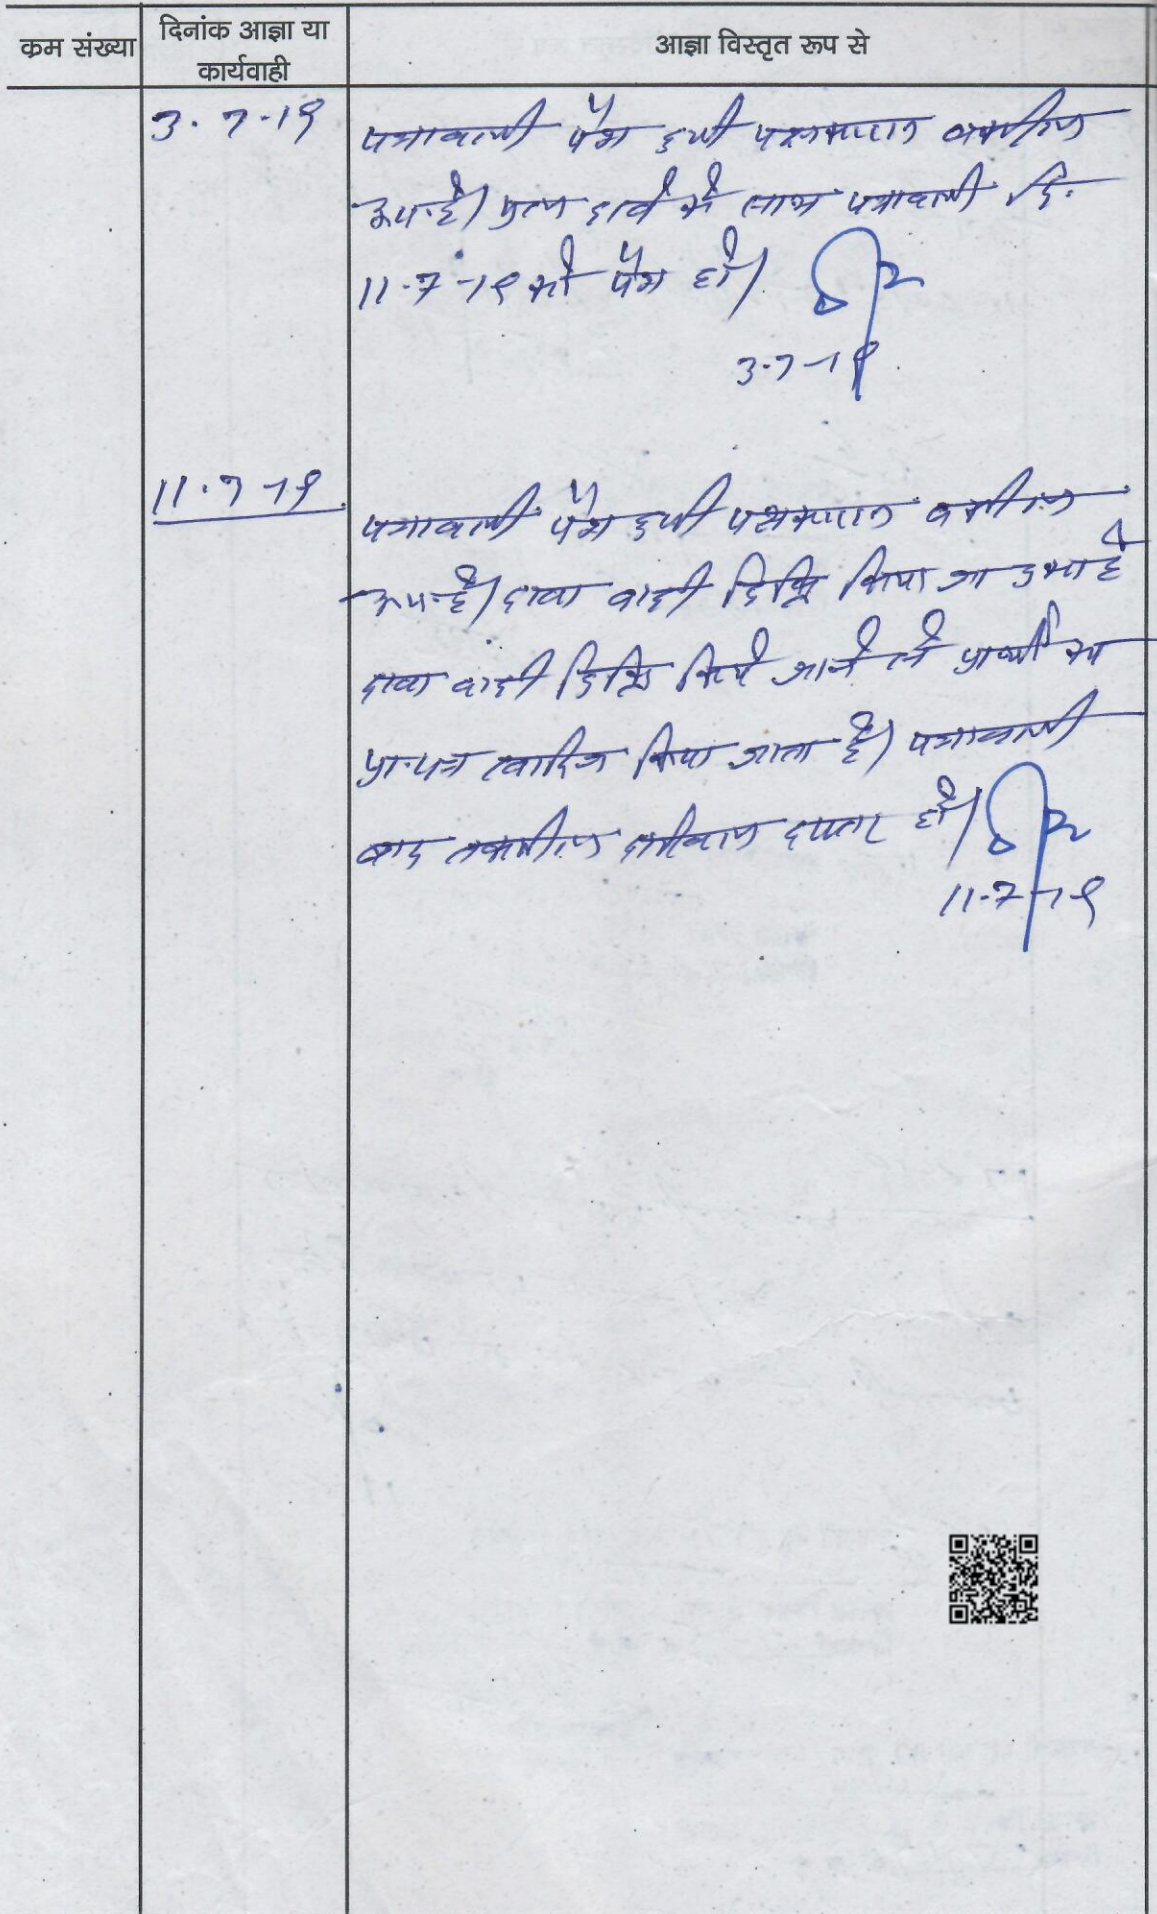 क्रम संख्या
दिनांक आज्ञा या
कार्यवाही
आज्ञा विस्तृत रूप से
3.7.19
पत्रावली पेश हुयी पक्षकारान वकील
उप.है। मूल दावे के साथ पत्रावली दि.
11-7-19 को पेश हो।
3-7-19
11.7-19
पत्रावली पेश हुयी पक्षकारान वकील
उप.है। दावा वादी डिक्री किया जा चुका है
दावा वादी डिक्री किये जाने से प्रार्थी का
प्रा.पत्र खारिज किया जाता है। पत्रावली
बाद तकमील दाखिल दफ्तर हो।
11-7-19